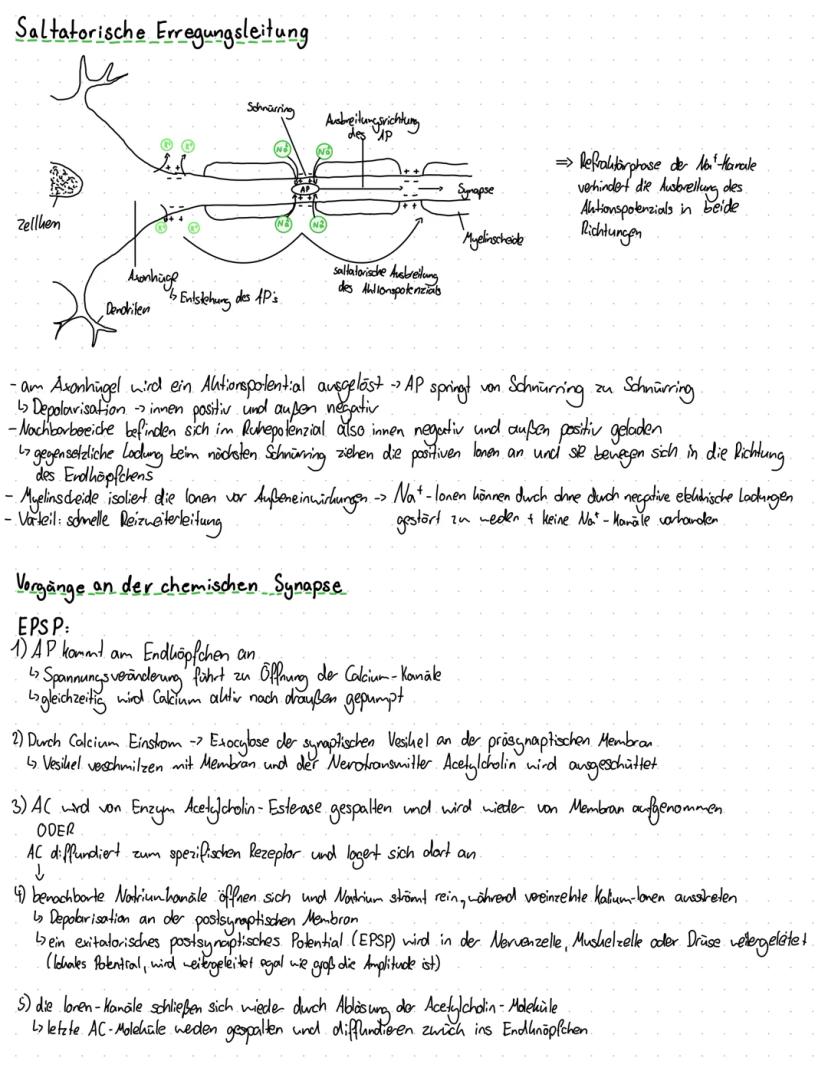 Saltatorische Erregungsleitung
Schnürring
Ausbreitungsrichtung
des AP
K⁺ K⁺
Na⁺ Na⁺
AP
Synapse
Zellkern
K⁺ K⁺
Na⁺ Na⁺
Myelinscheide
Axonhügel
↳ Entstehung des AP's
Dendriten
saltatorische Ausbreitung
des Aktionspotenzials
⇒ Refraktärphase der Na⁺-Kanäle
verhindert die Ausbreitung des
Aktionspotenzials in beide
Richtungen
- am Axonhügel wird ein Aktionspotential ausgelöst -> AP springt von Schnürring zu Schnürring
↳ Depolarisation -> innen positiv und außen negativ
- Nachbarbereiche befinden sich im Ruhepotenzial also innen negativ und außen positiv geladen
↳ gegensetzliche Ladung beim nächsten Schnürring ziehen die positiven Ionen an und sie bewegen sich in die Richtung
des Endköpfchens
- Myelinscheide isoliert die Ionen vor Außeneinwirkungen -> Na⁺-Ionen können durch ohne durch negative elektrische Ladungen
- Vorteil: schnelle Reizweiterleitung gestört zu werden + keine Na⁺-Kanäle vorhanden
Vorgänge an der chemischen Synapse
EPSP:
1) AP kommt am Endköpfchen an
↳ Spannungsveränderung führt zu Öffnung der Calcium-Kanäle
↳ gleichzeitig wird Calcium aktiv nach draußen gepumpt
2) Durch Calcium Einstrom -> Exocytose der synaptischen Vesikel an der präsynaptischen Membran
↳ Vesikel verschmilzen mit Membran und der Nerotransmitter Acetylcholin wird ausgeschüttet
3) AC wird von Enzym Acetylcholin-Esterase gespalten und wird wieder von Membran aufgenommen
ODER
AC diffundiert zum spezifischen Rezeptor und lagert sich dort an
↓
4) benachbarte Natriumkanäle öffnen sich und Natrium strömt rein, während vereinzelte Kalium-Ionen ausstreten
↳ Depolarisation an der postsynaptischen Membran
↳ ein exitatorisches postsynaptisches Potential (EPSP) wird in der Nervenzelle, Muskelzelle oder Drüse weitergeleitet
(lokales Potential, wird weitergeleitet egal wie groß die Amplitude ist)
5) die Ionen-Kanäle schließen sich wieder durch Ablösung der Acetylcholin-Moleküle
↳ letzte AC-Moleküle werden gespalten und diffundieren zurück ins Endknöpfchen